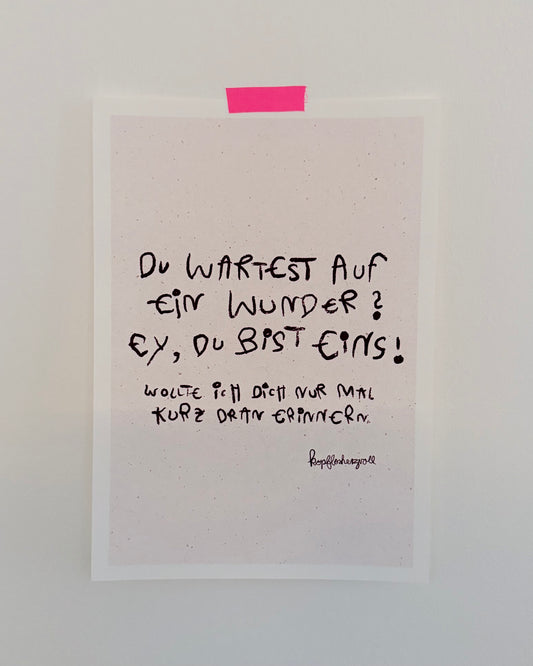 DU WARTEST AUF
EiN WUNDER?
EY, DU BIST EiNS!
WOLLTE iCH DiCH NUR MAL
KURZ DRAN ERiNNERN.
kopflosherzvoll